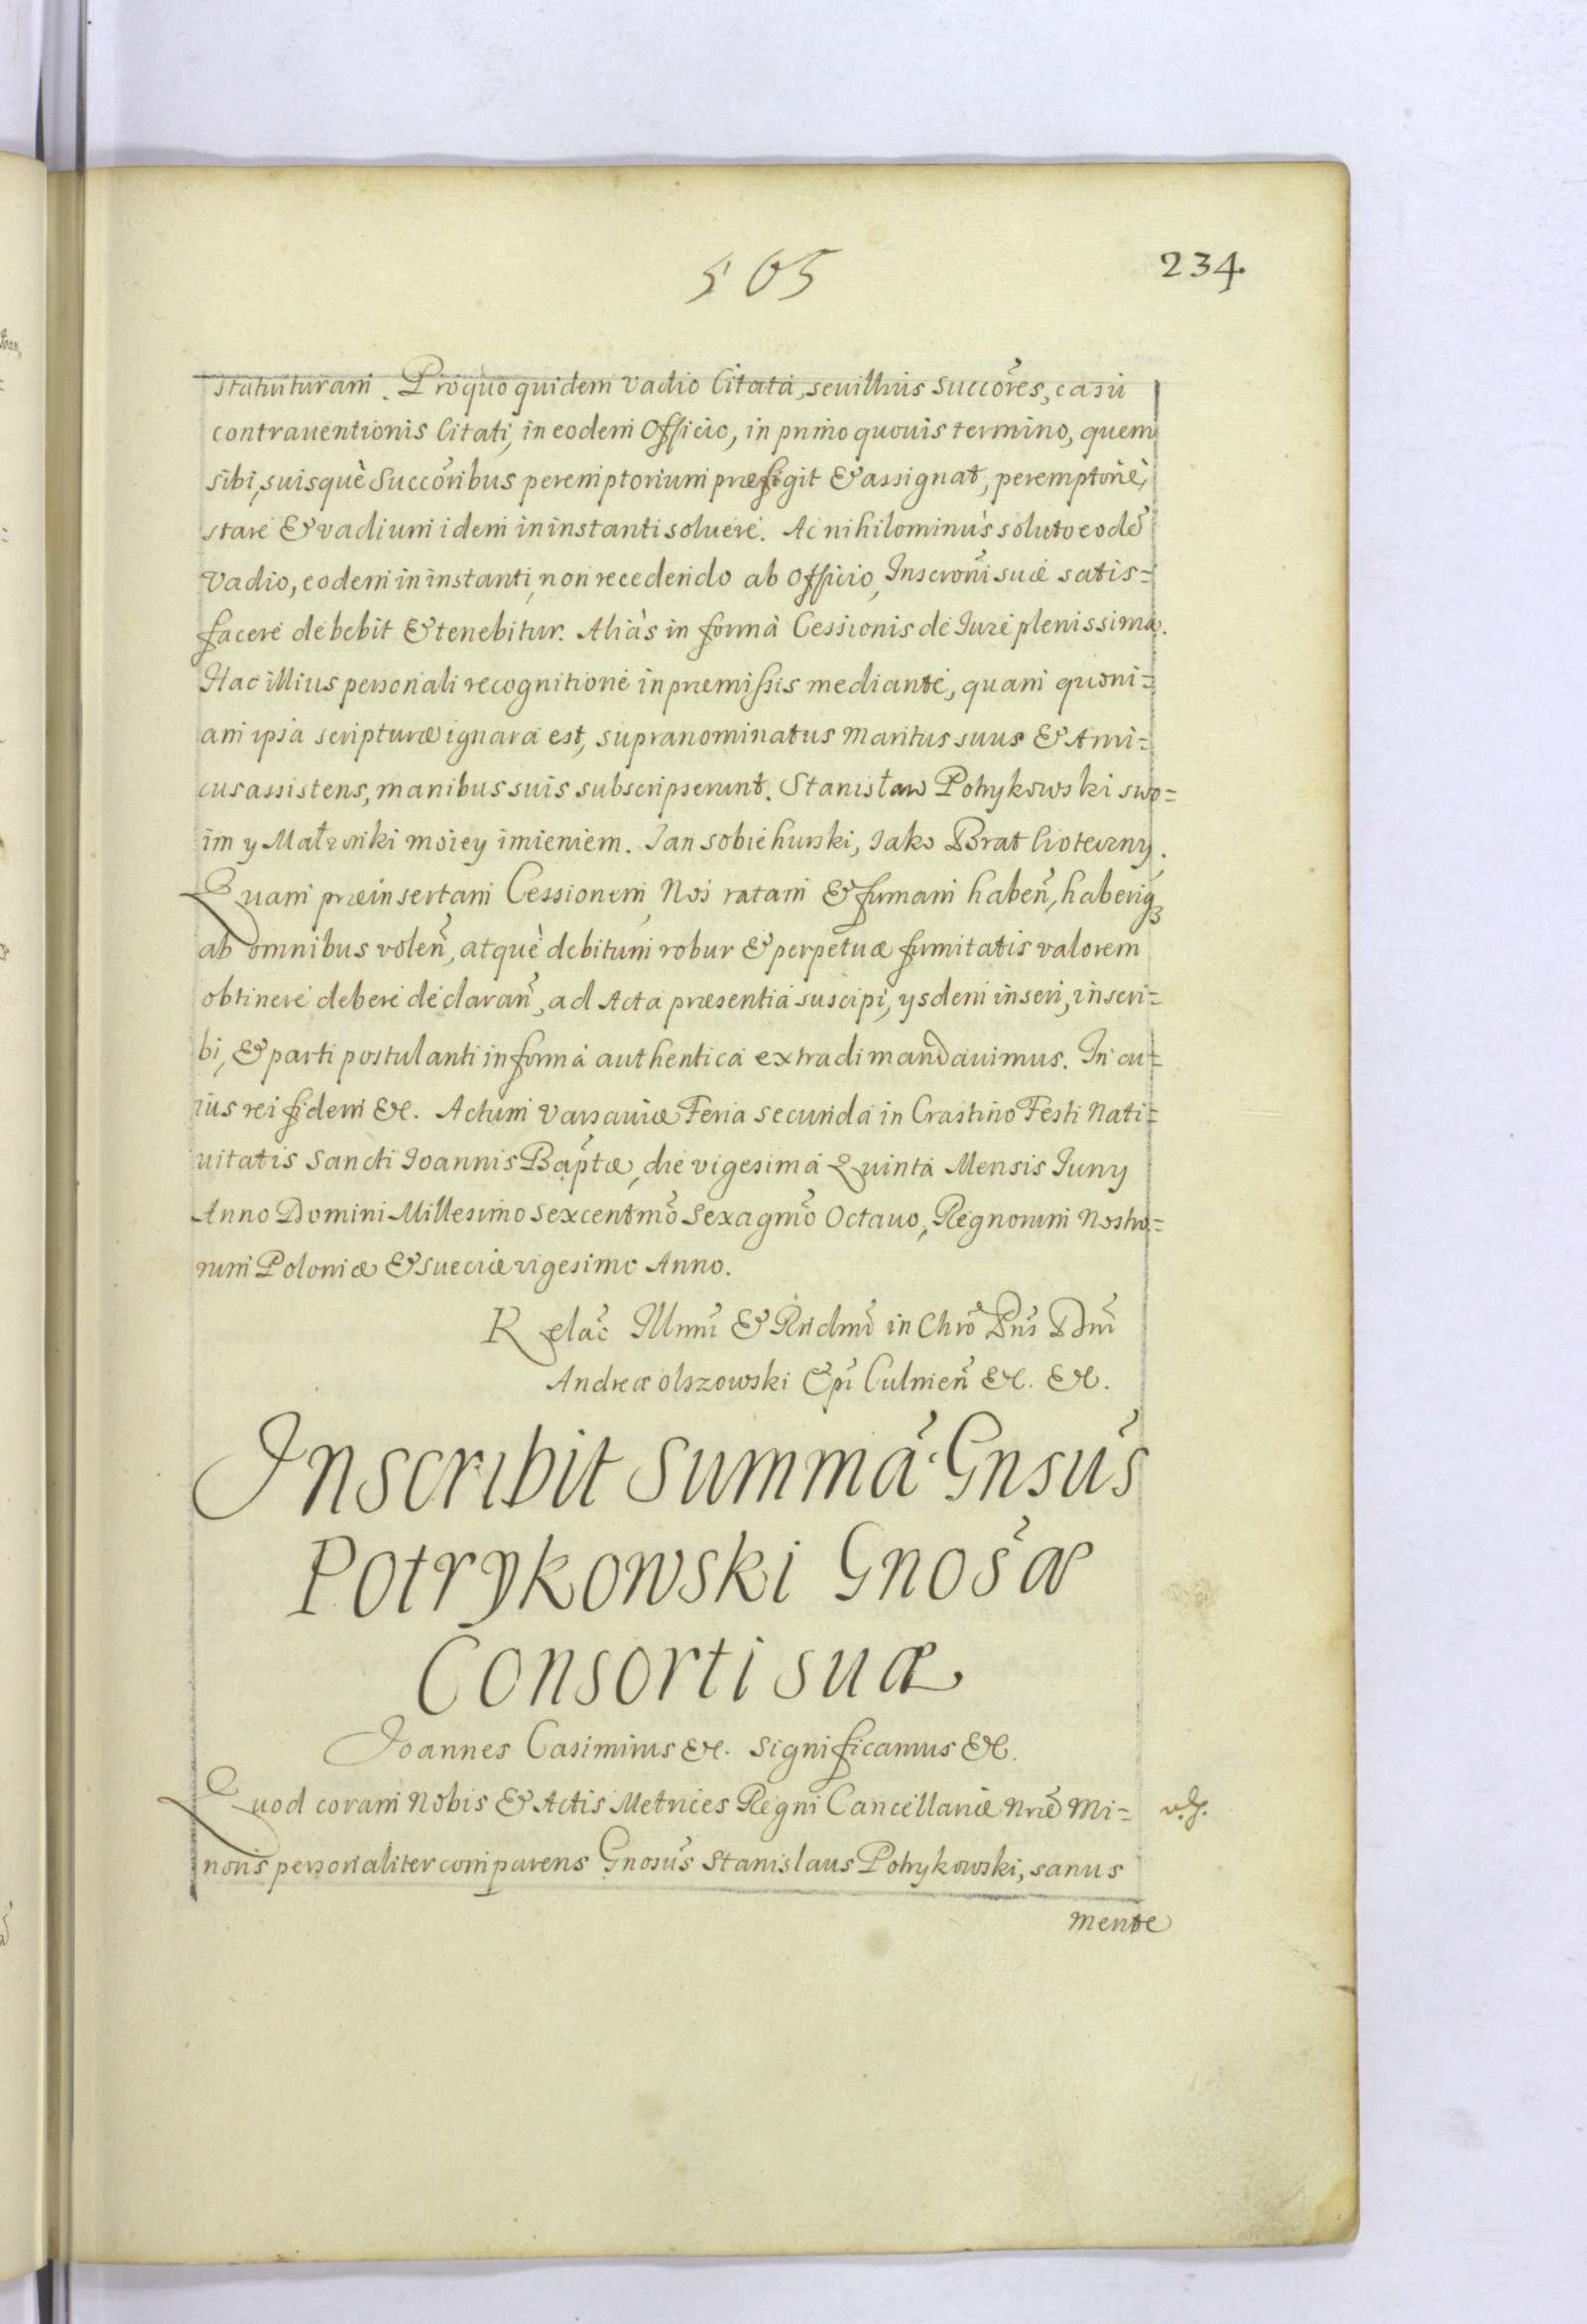 505
234.
statuituram. Pro quo quidem vadio Citata, seu illius succõres, casu
contrauentionis Citati, in eodem Officio, in primo quouis termino, quem
sibi, suisquè Succõribus peremptorium præfigit & assignat, peremptoriè,
stare & vadium idem in instanti soluere. Ac nihilominùs soluto eodẽ
Vadio, eodem in instanti, non recedendo ab officio, Inscronĩ suæ satis=
facere debebit & tenebitur. Aliàs in formà Cessionis de Iure plenissimà.
Hac illius personali recognitione in præmissis mediante, quam quoni=
am ipsa scripturæ ignara est, supranominatus Maritus suus & Ami=
cus assistens, manibus suis subscripserunt. Stanisław Potrykowski swo=
im y Małzonki moiey imieniem. Jan Sobiehurski, Jako Brat Cioteczny.
Quam præinsertam Cessionem Nos ratam & firmam habeñ, haberiq3
ab omnibus voleñ, atquè debitum robur & perpetuæ firmitatis valorem
obtinere debere declarañ, ad Acta præsentia suscipi, ysdem inseri, inscri=
bi, & parti postulanti in formà authentica extradi mandauimus. In cu=
ius rei fidem &c. Actum Varsauiæ Feria secunda in Crastino Festi Nati=
uitatis Sancti Joannis Bap̃tæ, die vigesimà Quintà Mensis Juny
Anno Domini Millesimo Sexcentmõ Sexagmõ Octauo, Regnorum Nostro=
rum Poloniæ & Sueciæ vigesimo Anno.
Relac̃ Illmĩ & Rndmĩ in Chrõ Pñs Dnĩ
Andreæ Olszowski Epĩ Culmeñ &c. &c.
Inscribit Summã Gnsũs
Potrykowski Gnos̃æ
Consorti suæ
Joannes Casimirus &c. Significamus &c.
Quod coram Nobis & Actis Metrices Regni Cancellariæ Nr̃æ Mi=
noris personaliter comparens Gnosũs Stanislaus Potrykowski, sanus
mente